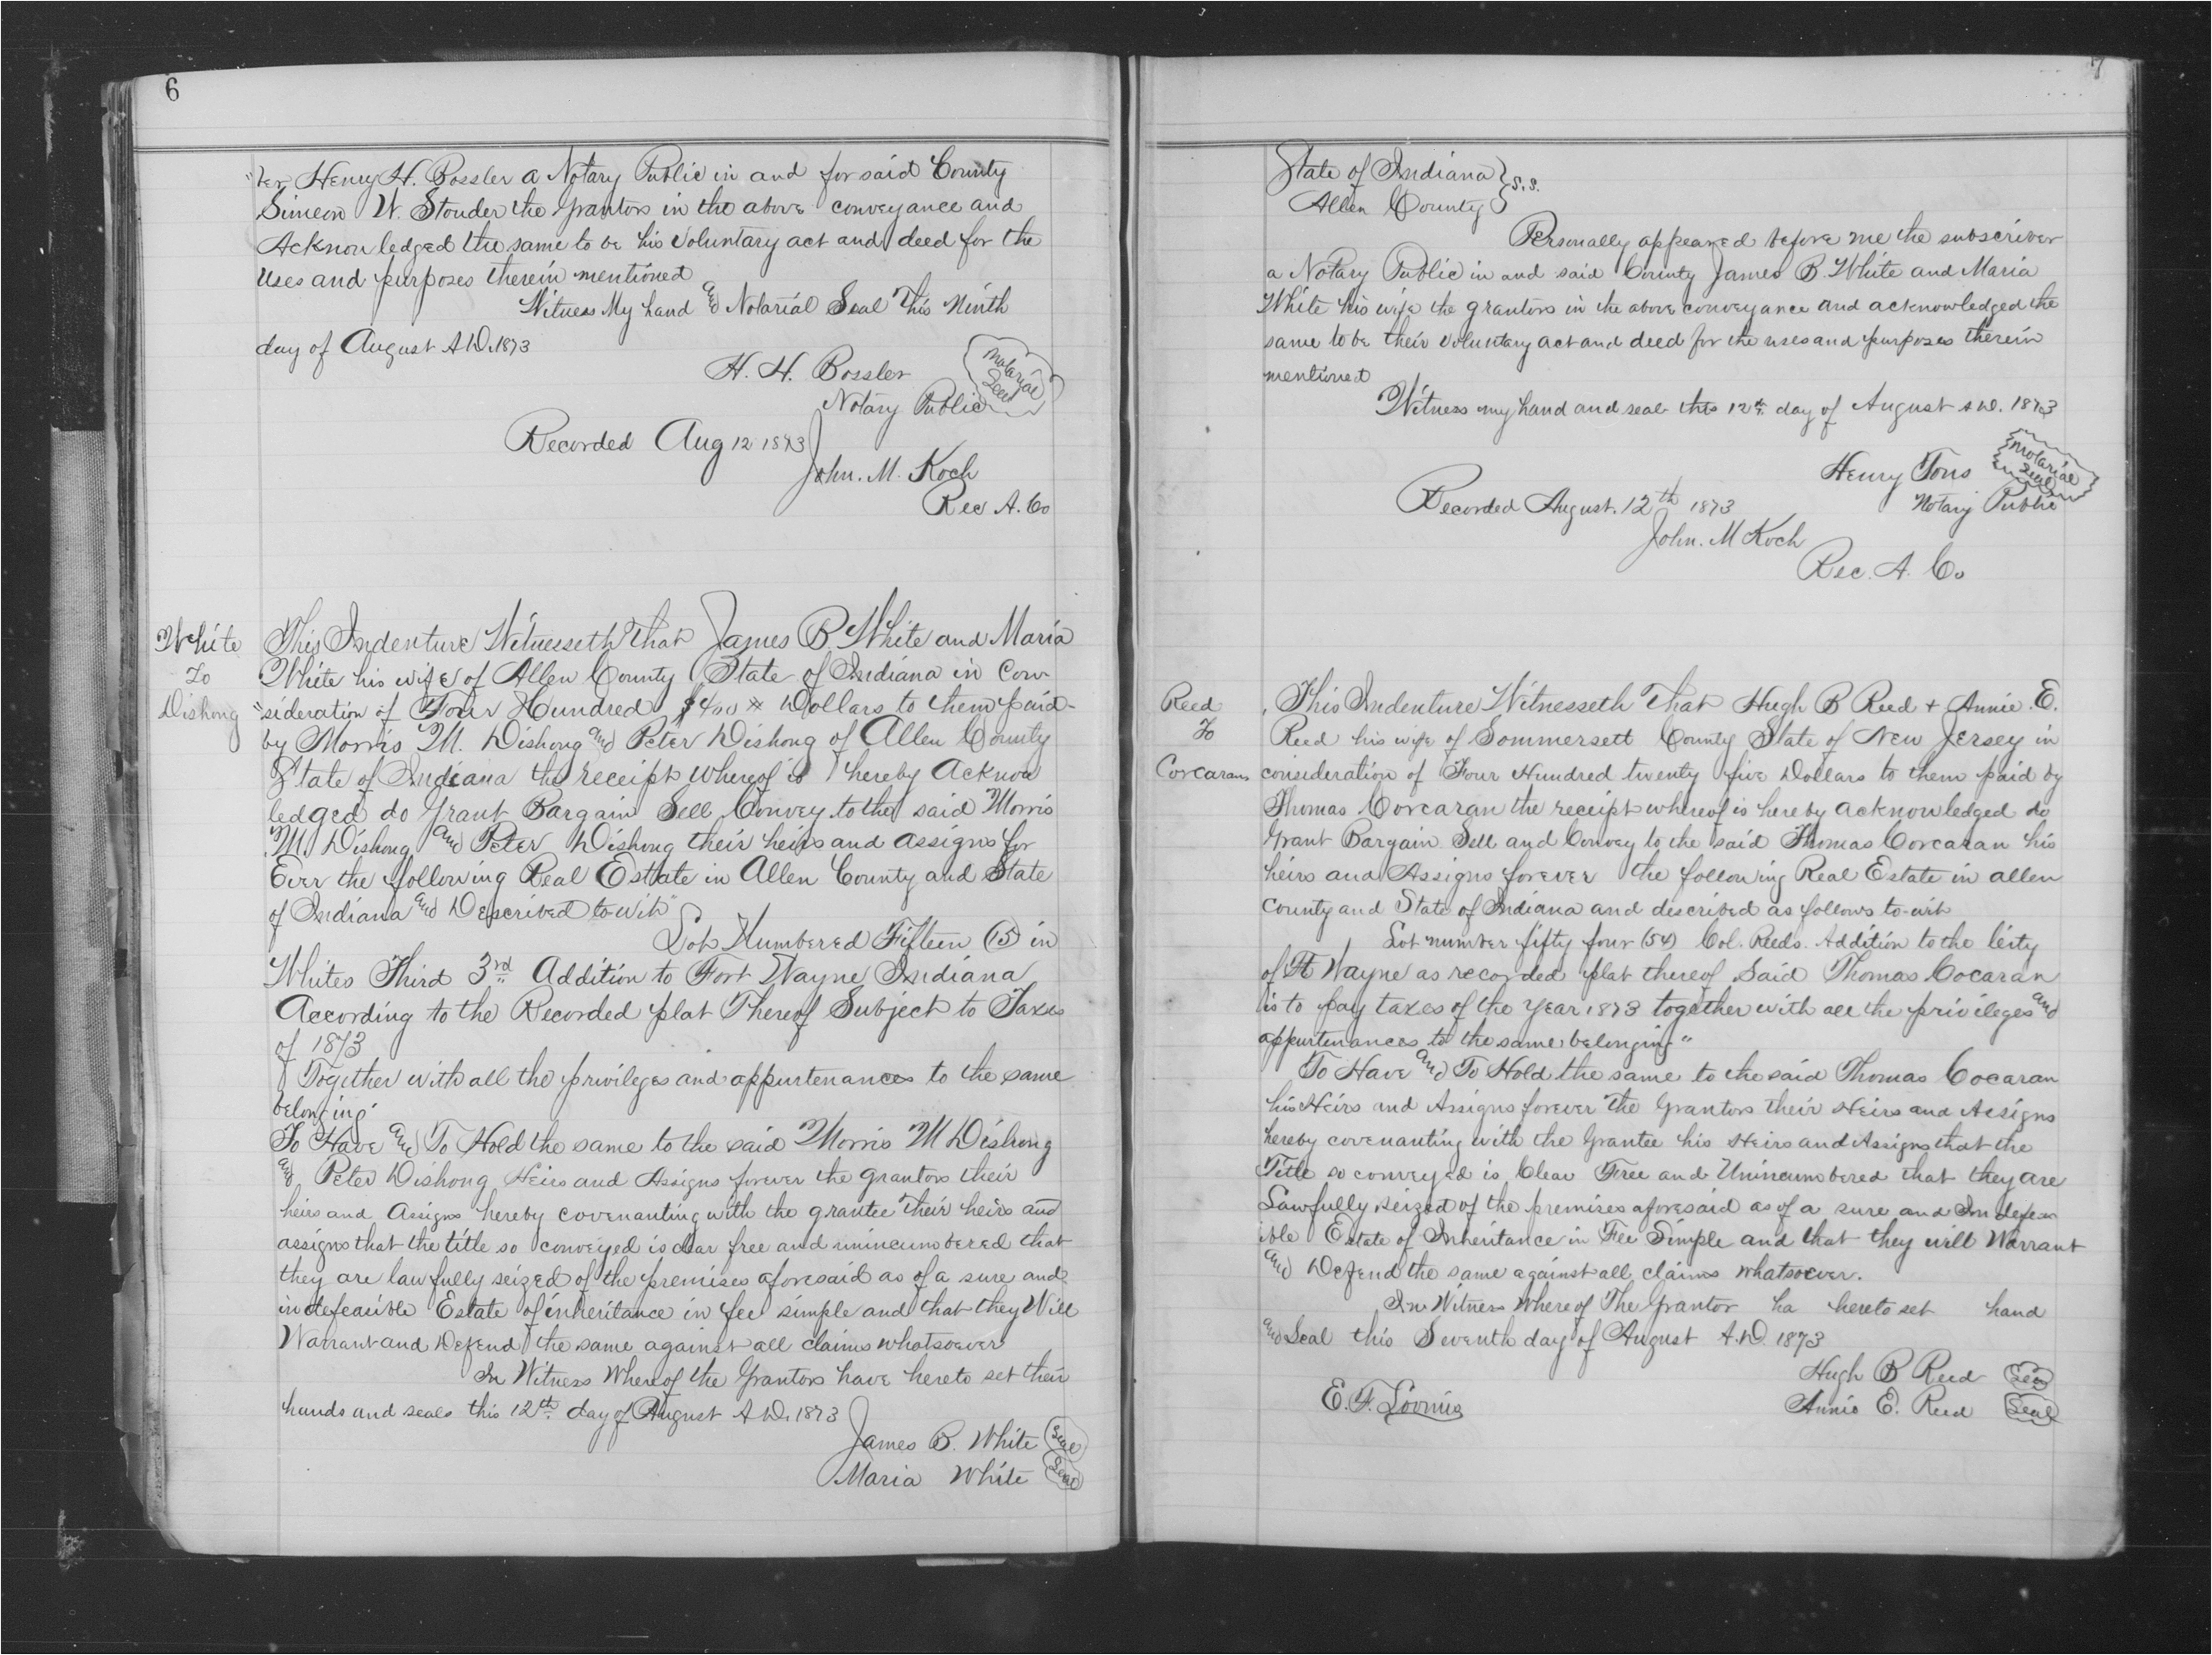 6
"ber Henry H. Bossler a Notary Public in and for said County
Simeon W. Stouder the Grantors in the above conveyance and
Acknowledged the same to be his voluntary act and deed for the
Uses and purposes therein mentioned
Witness My hand and Notarial Seal This Ninth
day of August A.D. 1873
H. H. Bossler
Notarial Seal
Notary Public
Recorded Aug 12 1873
John. M. Koch
Rec A. Co
White
To
Dishong
This Indenture Witnesseth That James B. White and Maria
White his wife of Allen County State of Indiana in Con
"sideration of Four Hundred $400 Dollars to them paid
by Morris M. Dishong and Peter Dishong of Allen County
State of Indiana the receipt whereof is hereby Acknow
ledged do Grant Bargain Sell Convey to the said Morris
M. Dishong and Peter Dishong their heirs and assigns for
Ever the following Real Esttate in Allen County and State
of Indiana and Described to-wit"
Lot Numbered Fifteen (15) in
Whites Third 3rd Addition to Fort Wayne Indiana
According to the Recorded plat Thereof Subject to Taxes
of 1873
Together with all the privileges and appurtenances to the same
belonging"
To Have and To Hold the same to the said Morris M Dishong
and Peter Dishong Heirs and Assigns forever the grantors their
heirs and Assigns hereby covenanting with the grantee their heirs and
assigns that the title so conveyed is clear free and unincumbered that
they are lawfully seized of the premises aforesaid as of a sure and
indefeasible Estate of inheritance in fee simple and that they Will
Warrant and Defend the same against all claims whatsoever
In Witness Whereof the Grantors have hereto set their
hands and seals this 12th day of August A.D. 1873
James B. White Seal
Maria White Seal
7
State of Indiana } S.S.
Allen County
Personally appeared before me the subscriber
a Notary Public in and said County James B. White and Maria
White his wife the grantors in the above conveyance and acknowledged the
same to be their voluntary act and deed for the uses and purposes therein
mentioned
Witness my hand and seal this 12th day of August A.D. 1873
Henry Tons
Notarial Seal
Notary Public
Recorded August. 12th 1873
John. M Koch
Rec. A. Co
Reed
To
Corcaran
This Indenture Witnesseth That Hugh B Reed + Annie. E.
Reed his wife of Sommersett County State of New Jersey in
consideration of Four Hundred twenty five Dollars to them paid by
Thomas Corcaran the receipt whereof is hereby acknowledged do
Grant Bargain Sell and Convey to the said Thomas Corcaran his
heirs and Assigns forever the following Real Estate in allen
County and State of Indiana and described as follows to-wit
Lot number fifty four (54) Col. Reeds. Addition to the City
of Ft Wayne as recorded plat thereof Said Thomas Cocaran
is to pay taxes of the Year 1873 together with all the privileges and
appurtenances to the same belonging"
To Have and To Hold the same to the said Thomas Cocaran
his Heirs and Assigns forever the Grantors their Heirs and Assigns
hereby covenanting with the Grantee his Heirs and Assigns that the
Title so conveyed is Clear Free and Unincumbered that they are
Lawfully seized of the premises aforesaid as of a sure and Indefeas
ible Estate of Inheritance in Fee Simple and that they will Warrant
and Defend the same against all claims whatsoever.
In Witness Whereof The Grantor ha hereto set hand
and Seal this Seventh day of August A.D. 1873
Hugh B Reed Seal
E. F. Loomis
Annie E. Reed Seal